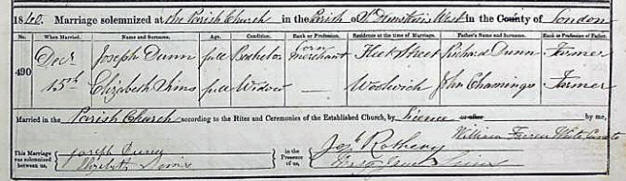 1840. Marriage solemnized at the Parish Church in the Parish of St Dunstan's West in the County of London
No. When Married. Name and Surname. Age. Condition. Rank or Profession. Residence at the time of Marriage. Father's Name and Surname. Rank or Profession of Father.
490 Decr Joseph Dunn full Bachelor Corn Merchant Fleet Street Richard Dunn Farmer
15th Elizabeth Sims full Widow — Woolwich John Chamings Farmer
Married in the Parish Church according to the Rites and Ceremonies of the Established Church, by Licence or after by me,
William White Curate
This Marriage was solemnized between us, Joseph Dunn in the Presence of us, Josh Rothery
Elizabeth